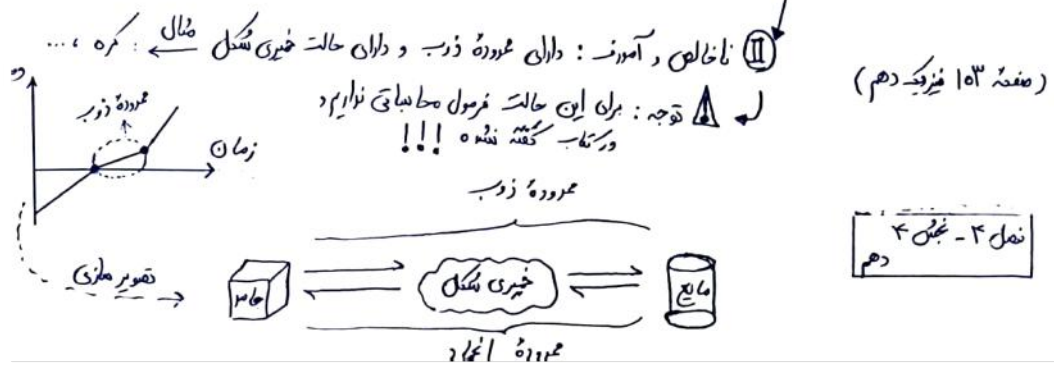 II ناخالص و آمورف : دارای محدودهٔ ذوب و دارای حالت خمیری شکل مثال : کره ، ...
(صفحهٔ ۱۰۳ فیزیک دهم)
توجه : برای این حالت فرمول محاسباتی نداریم و
در کتاب گفته نشده !!!
محدودهٔ ذوب
زمان
محدودهٔ ذوب
فصل ۴ - بخش ۴
دهم
تصویر سازی
جامد
خمیری شکل
مایع
محدودهٔ انجماد